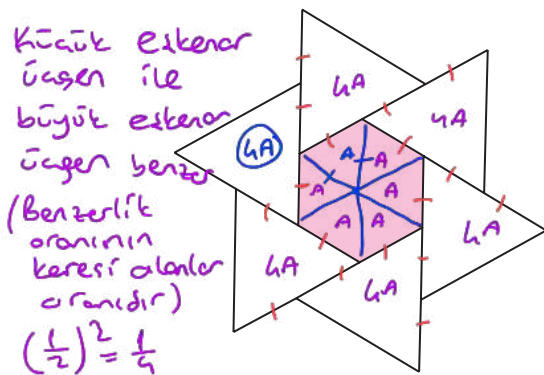 Küçük eşkenar
üçgen ile
büyük eşkenar
üçgen benzer
(Benzerlik
oranının
karesi alanlar
oranıdır)
(1/2)² = 1/4
4A
4A
4A
A A
A A
A A
4A
4A
4A